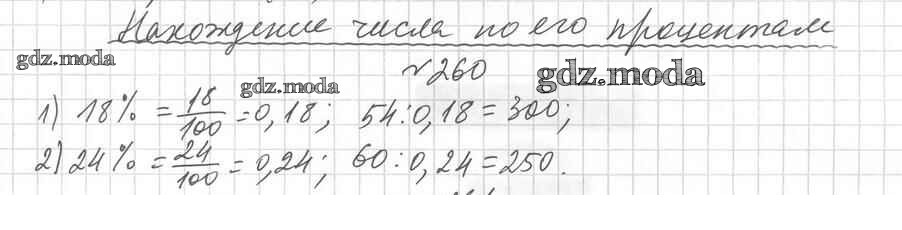 Нахождение числа по его процентам
gdz.moda
№260
gdz.moda
gdz.moda
1) 18% = 18/100 = 0,18; 54:0,18 = 300;
2) 24% = 24/100 = 0,24; 60:0,24 = 250.